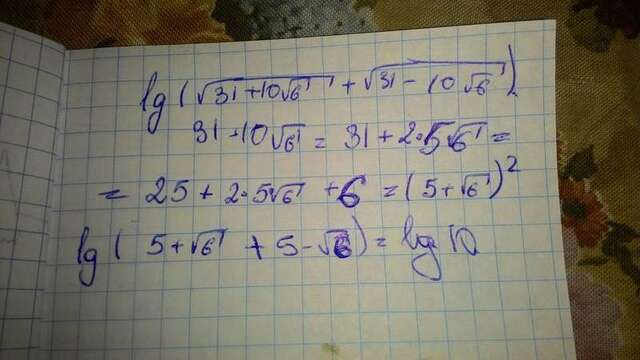 lg(√31+10√6 + √31-10√6)
31+10√6 = 31+2·5√6 =
= 25+2·5√6 +6 = (5+√6)²
lg( 5+√6 + 5-√6) = lg 10